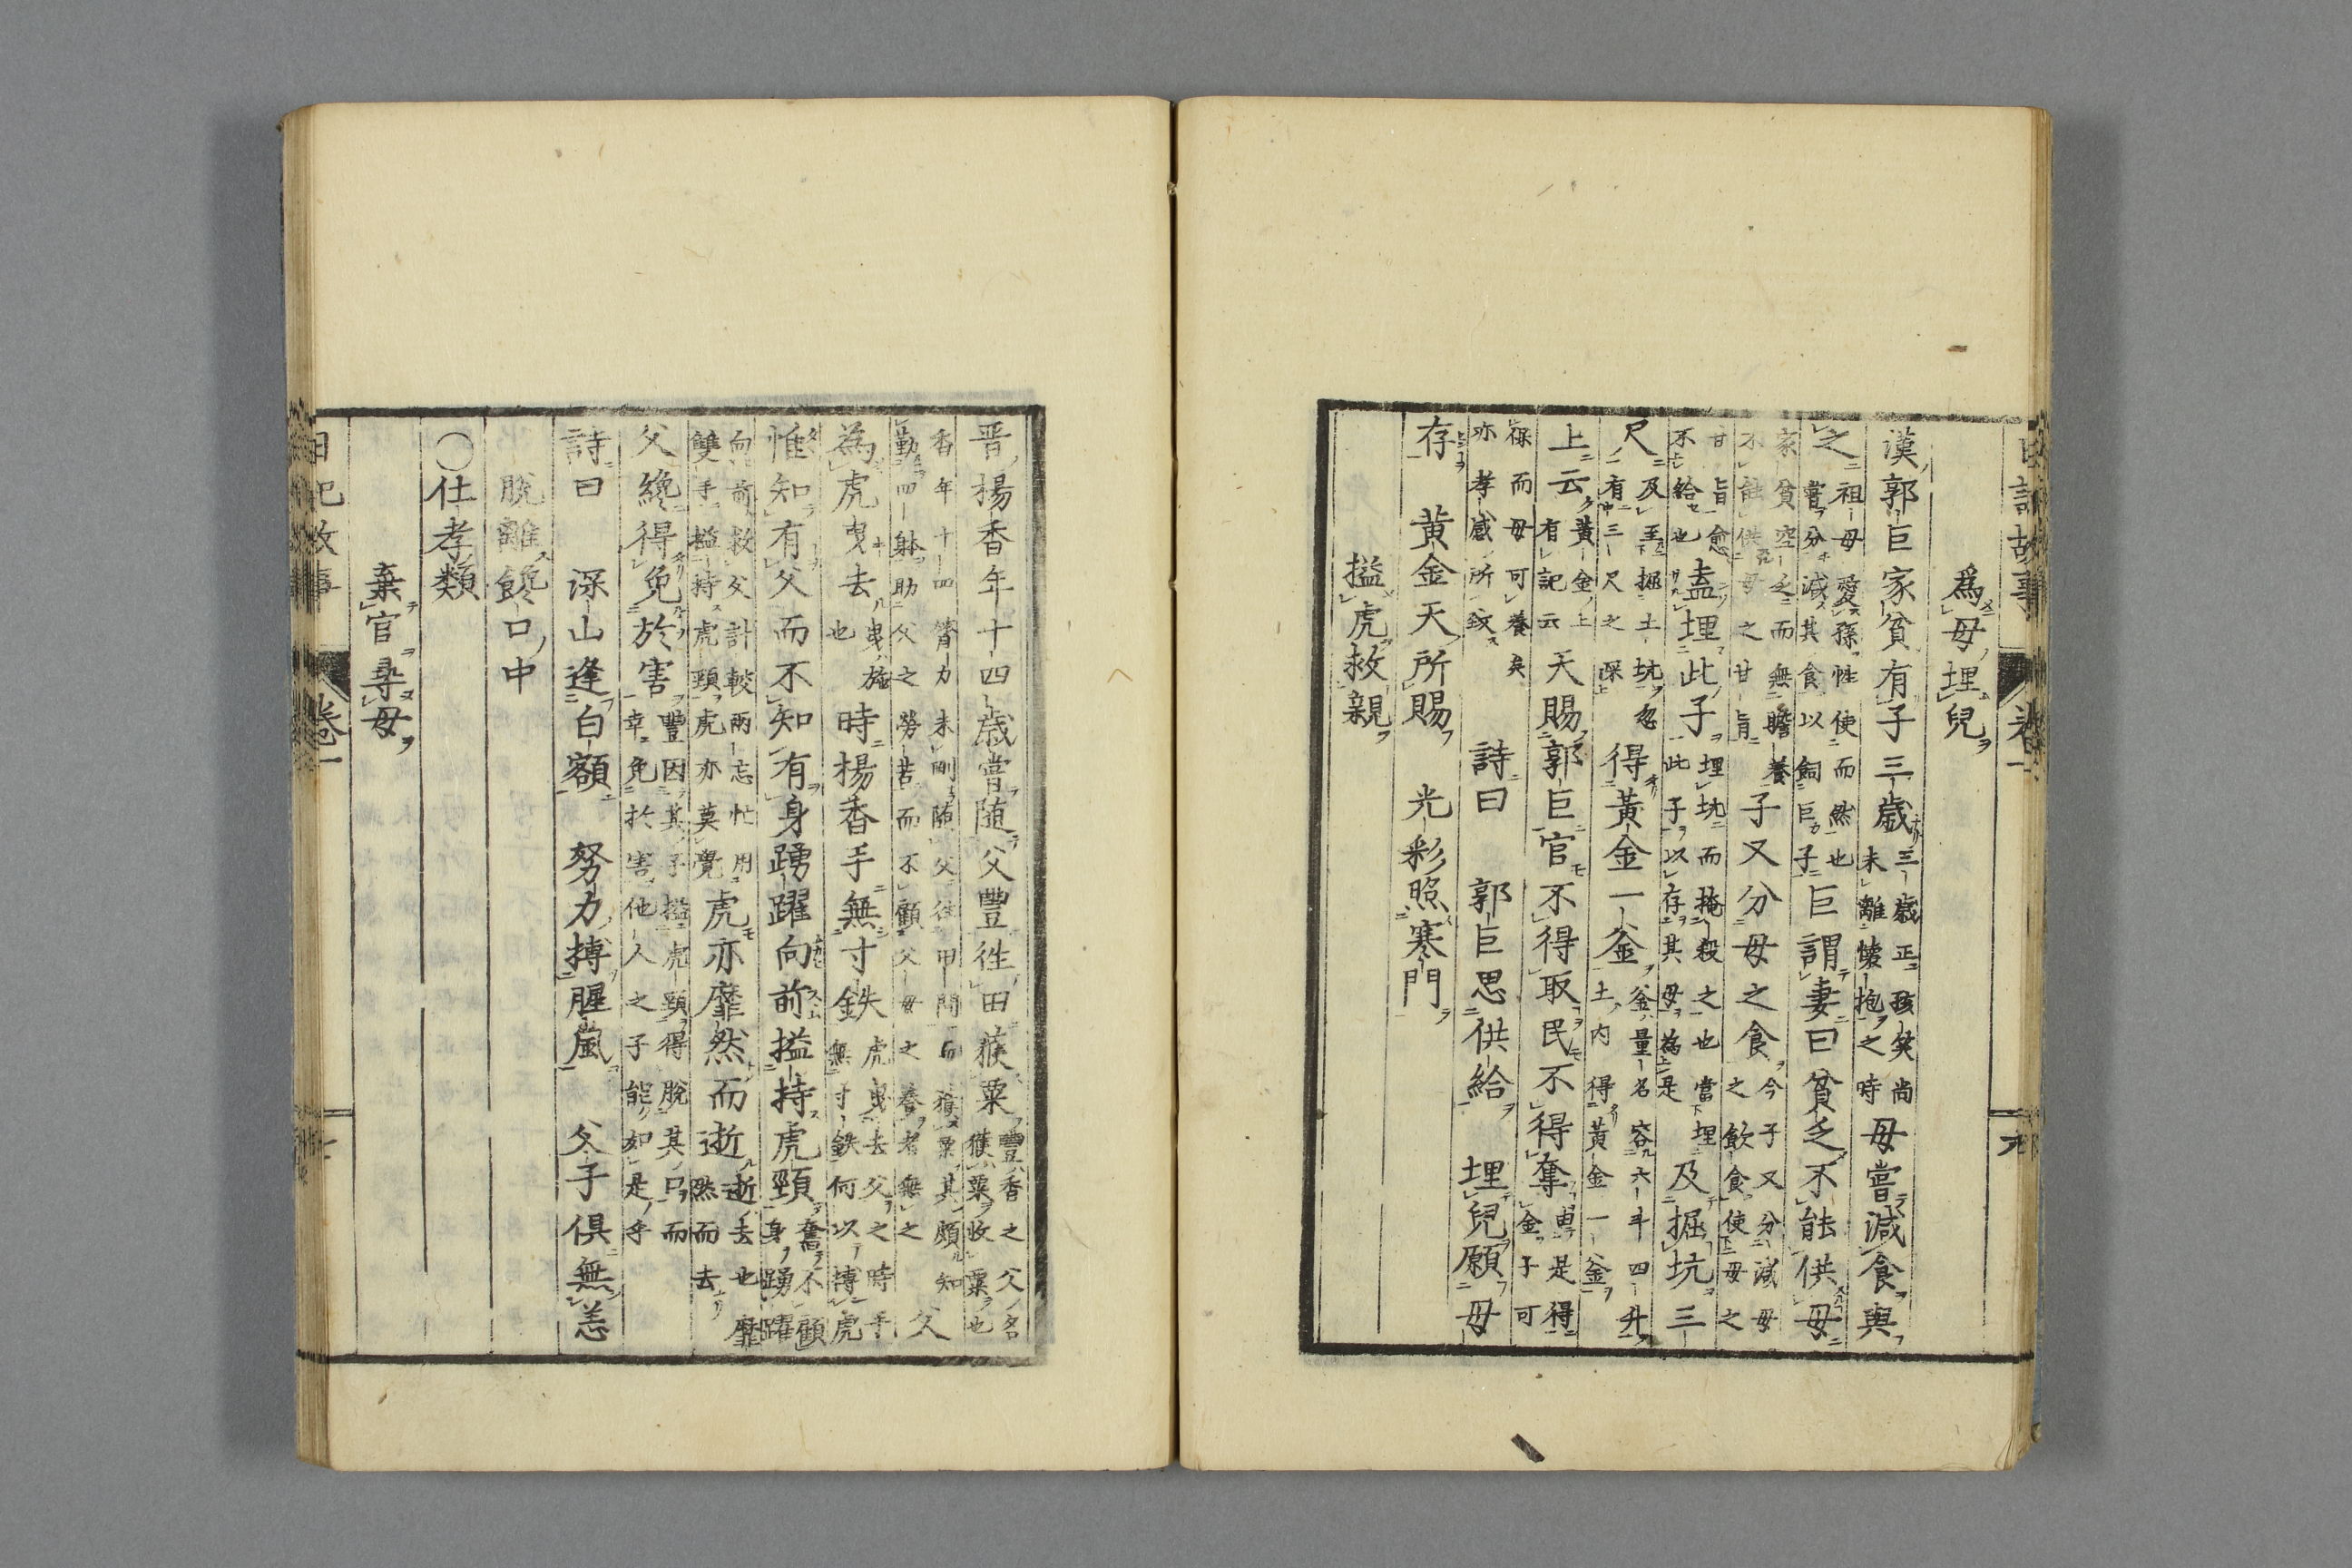 日記故事 卷一 九
為母埋兒
漢郭巨家貧有子三歲 三歲正孩笑尚未離懷抱之時 母嘗減食與
之 祖母愛孫性使而然也嘗分減其食以飼巨子 巨謂妻曰貧乏不能供母
家貧空乏而無贍養不能供母之甘旨 子又分母之食 今子又分減母之飲食使母之
甘旨愈不給也 盍埋此子 埋坑而掩殺之也當埋此子以存其母為是 及掘坑三
尺 及至掘土坑忽有三尺之深 得黃金一釜 釜量名容六斗四升土內得黃金一釜
上云 黃金上有記云 天賜郭巨官不得取民不得奪 由是得金子可
祿而母可養矣亦孝感所致 詩曰 郭巨思供給 埋兒願母
存 黄金天所賜 光彩照寒門
搤虎救親
晋楊香年十四歲嘗随父豐徃田穫粟 豐香之父名穫粟收粟也
香年十四膂力未剛隨父往田間而穫粟其頗知勤四躰助父之勞苦而不顧父母之養者無之 父
為虎曳去 曳拖也 時楊香手無寸鉄 虎曳去父之時手無寸鉄何以搏虎
惟知有父而不知有身踴躍向前搤持虎頸 奮不顧身踴躍
向前救父計較兩忘忙用雙手搤持虎頸虎亦莫覺 虎亦靡然而逝 逝去也靡然而去
父纔得免於害 豐因其子搤虎頸得脫其口而幸免於害他人之子能如是乎
詩曰 深山逢白額 努力搏腥風 父子俱無恙
脫離饞口中
○仕孝類
棄官尋母
日記故事 卷一